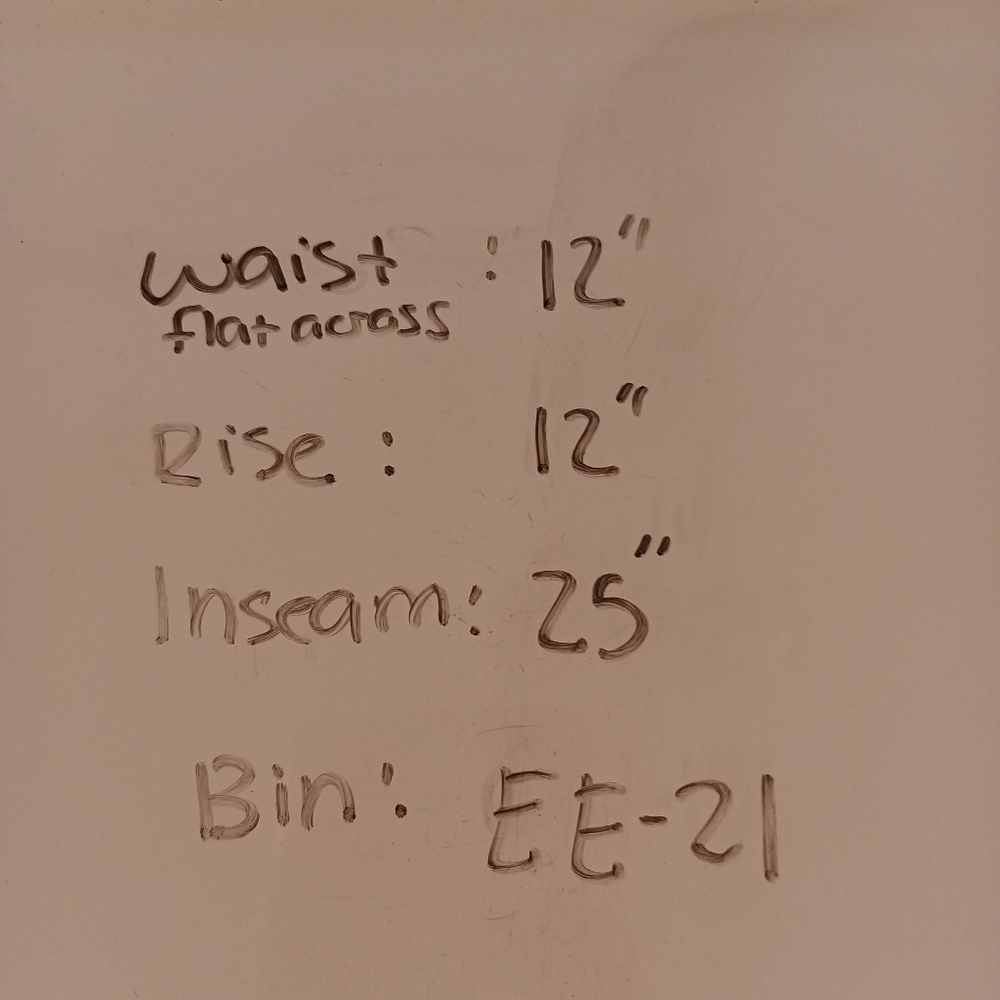 Waist : 12"
flat across
Rise : 12"
Inseam: 25"
Bin: EE-21